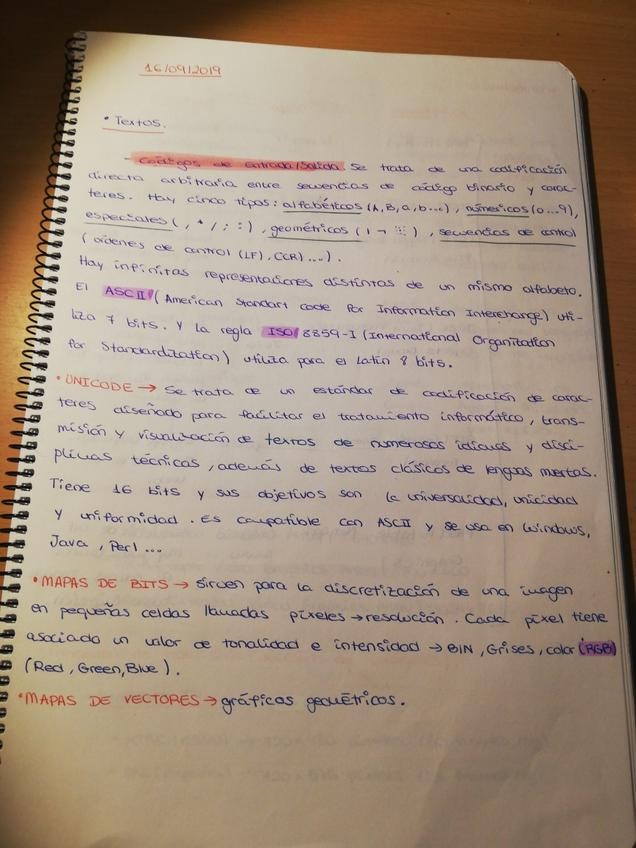 16/09/2019
• Textos.
- Códigos de entrada/Salida. Se trata de una codificación
directa arbitraria entre secuencias de código binario y carac-
teres. Hay cinco tipos: alfabéticos (A, B, a, b...), númericos (0...9),
especiales (, * / ; :), geométricos (| ¬), secuencias de control
(órdenes de control (LF), (CR)...).
Hay infinitas representaciones distintas de un mismo alfabeto.
El ASCII (American Standart code for Information Interchange) uti-
liza 7 bits. Y la regla ISO 8859-I (International Organization
for Standardization) utiliza para el Latin 8 bits.
• UNICODE → Se trata de un estándar de codificación de carac-
teres diseñado para facilitar el tratamiento informático, trans-
misión y visualización de textos de numerosos idiomas y disci-
plinas técnicas, además de textos clásicos de lenguas muertas.
Tiene 16 bits y sus objetivos son la universalidad, unicidad
y uniformidad. Es compatible con ASCII y se usa en Windows,
Java, Perl...
• MAPAS DE BITS → sirven para la discretización de una imagen
en pequeñas celdas llamadas píxeles → resolución. Cada píxel tiene
asociado un valor de tonalidad e intensidad → BIN, Grises, color (RGB)
(Red, Green, Blue).
• MAPAS DE VECTORES → gráficos geométricos.